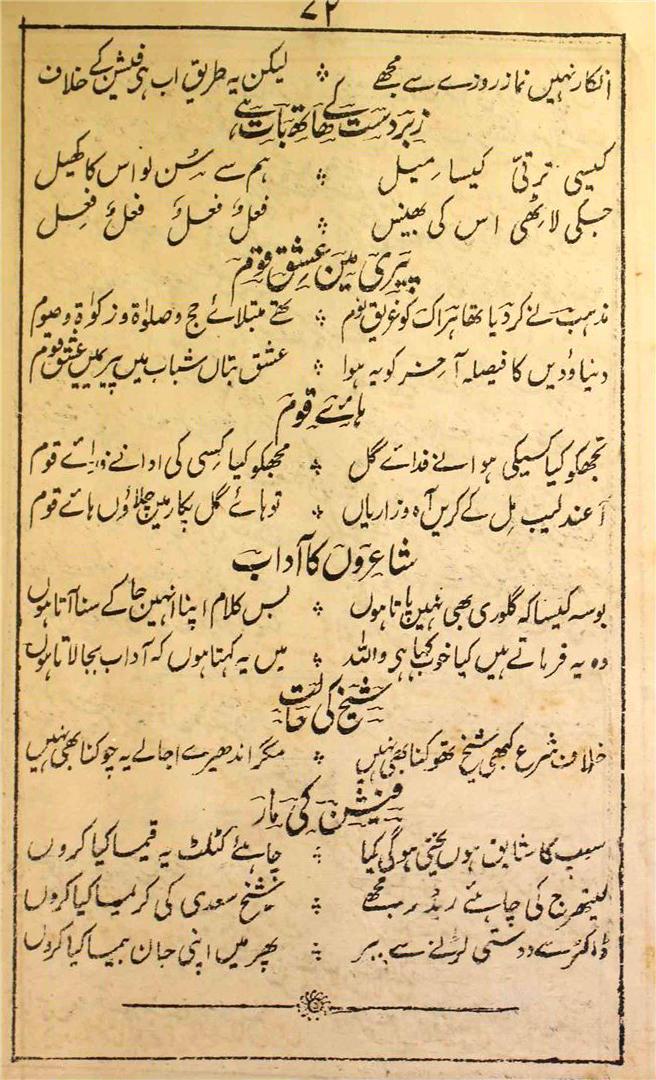 ۷۲
انکار نہیں نماز روزے سے مجھے ؞ لیکن یہ طریق اب ہی فیشن کے خلاف
زبردست کے ہاتھ بات ہے
کیسی ترقی کیسا میل ؞ ہم سے سُن لو اس کا کھیل
جسکی لاٹھی اس کی بھینس ؞ فعلُ فعلُ فعلُ فعِل
پیری مین عشق قوم
مذہب نے کر دیا تھا ہر اک کو غریق نوم ؞ تھے مبتلائے حج و صلوٰۃ و زکوٰۃ و صوم
دنیا و دیں کا فیصلہ آخر کو یہ ہوا ؞ عشق بتاں شباب میں پیری میں عشق قوم
ہائے قوم
تجھکو کیا کسیکی ہوا نے فدائے گل ؞ مجھکو کیا کسی کی ادا نے فدائے قوم
آ عندلیب مل کے کریں آہ و زاریاں ؞ تو ہائے گل پکار میں چلاؤں ہائے قوم
شاعروں کا آداب
بوسہ کیسا کہ گلوری بھی نہیں پاتا ہوں ؞ بس کلام اپنا انہیں جا کے سنا آتا ہوں
وہ یہ فرماتے ہیں کیا خوب کہا ہی واللہ ؞ میں یہ کہتا ہوں کہ آداب بجا لاتا ہوں
شیخ کی حالت
خلاف شرع کبھی شیخ تھوکتا بھی نہیں ؞ مگر اندھیرے اجالے یہ چوکتا بھی نہیں
فیشن کی مار
سوپ کا شایق ہوں یخنی ہوگی کیا ؞ چاہئے کٹلٹ یہ قیما کیا کروں
لیتھرج کی چاہئے ریڈر مجھے ؞ شیخ سعدی کی کریما کیا کروں
ڈاکٹر سے دوستی لڑنے سے بیر ؞ پھر میں اپنی جان بیما کیا کروں